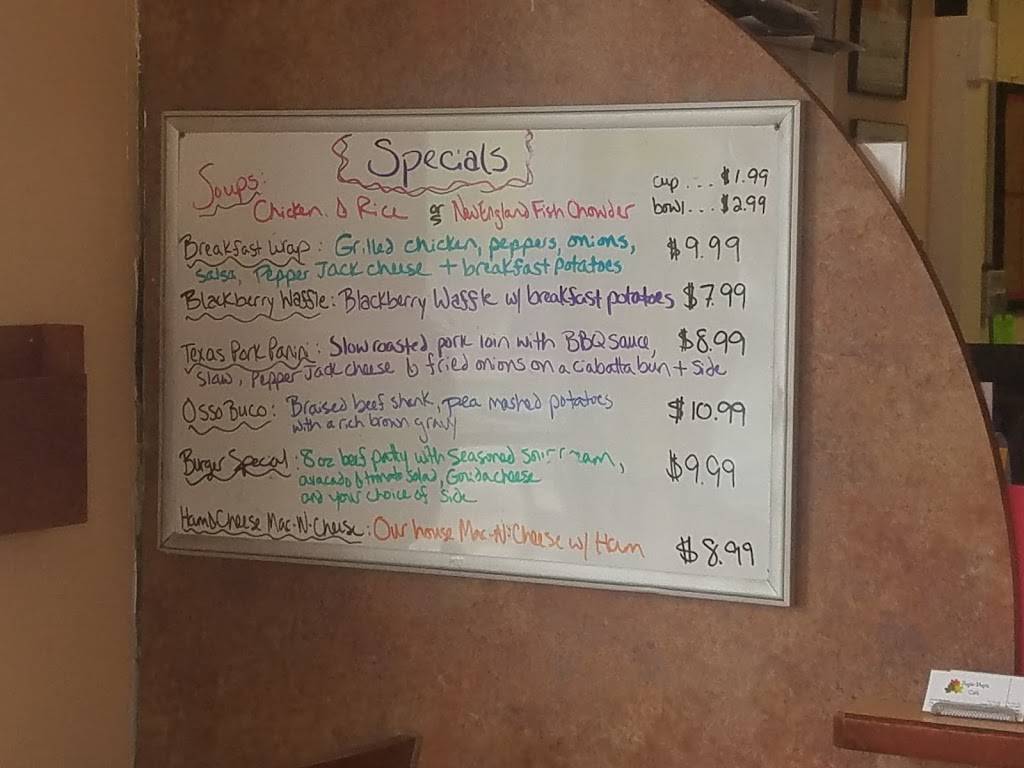 Specials
Soups:
cup... $1.99
Chicken & Rice or New England Fish Chowder
bowl... $2.99
Breakfast Wrap: Grilled chicken, peppers, onions, $9.99
salsa, Pepper Jack cheese + breakfast potatoes
Blackberry Waffle: Blackberry Waffle w/ breakfast potatoes $7.99
Texas Pork Panini: Slow roasted pork loin with BBQ sauce, $8.99
slaw, Pepper Jack cheese & fried onions on a ciabatta bun + side
Osso Buco: Braised beef shank, pea mashed potatoes $10.99
with a rich brown gravy
Burger Special: 8 oz beef patty with seasoned sour cream, $9.99
avacado & tomato salad, Gouda cheese
and your choice of side
Ham & Cheese Mac-N-Cheese: Our house Mac-N-Cheese w/ Ham $8.99